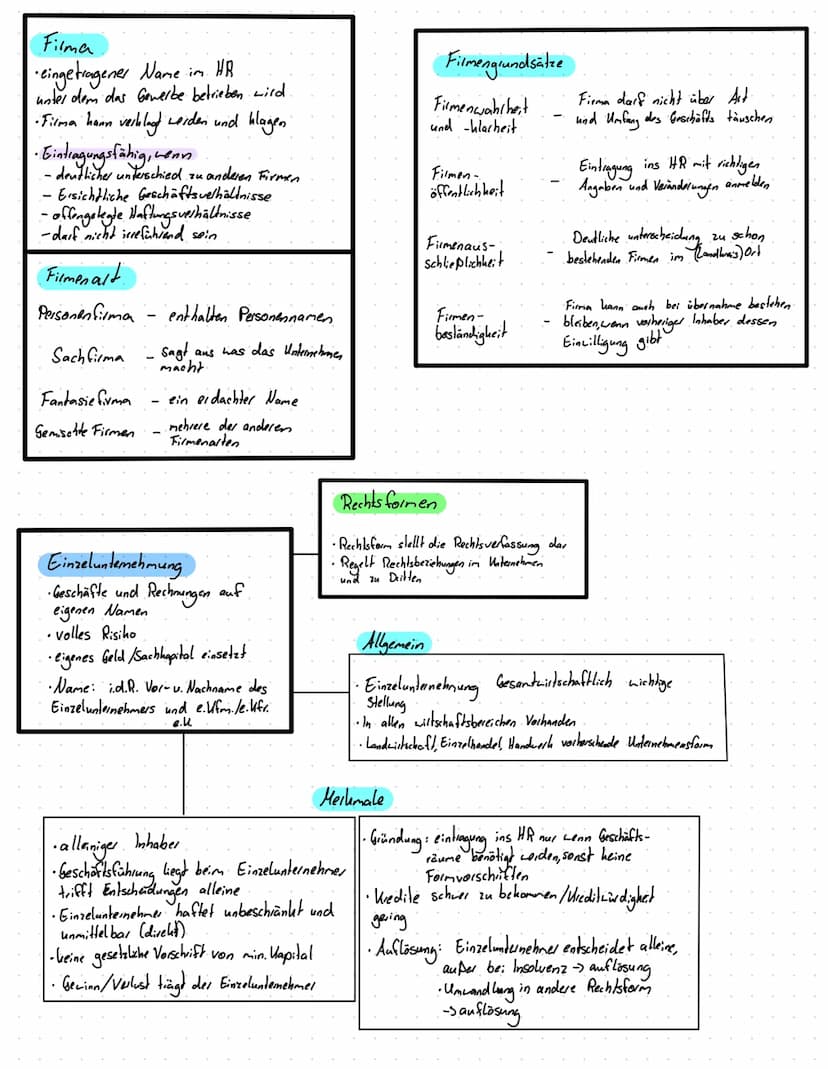 Firma
· eingetragener Name im HR
unter dem das Gewerbe betrieben wird
· Firma kann verklagt werden und klagen
· Eintragungsfähig, wenn
- deutlicher unterschied zu anderen Firmen
- Ersichtliche Geschäftsverhältnisse
- offengelegte Haftungsverhältnisse
- darf nicht irreführend sein
Firmenart
Personenfirma - enthalten Personennamen
Sachfirma - sagt aus was das Unternehmen
macht
Fantasiefirma - ein erdachter Name
Gemischte Firmen - mehrere der anderen
Firmenarten
Firmengrundsätze
Firmenwahrheit
und -klarheit
- Firma darf nicht über Art
und Umfang des Geschäfts täuschen
Firmen-
öffentlichkeit
- Eintragung ins HR mit richtigen
Angaben und Veränderungen anmelden
Firmenaus-
schließlichkeit
- Deutliche unterscheidung zu schon
bestehenden Firmen im (Landkreis) Ort
Firmen-
beständigkeit
- Firma kann auch bei übernahme bestehen
bleiben, wenn vorheriger Inhaber dessen
Einwilligung gibt
Rechtsformen
· Rechtsform stellt die Rechtsverfassung dar
· Regelt Rechtsbeziehungen im Unternehmen
und zu Dritten
Einzelunternehmung
· Geschäfte und Rechnungen auf
eigenen Namen
· volles Risiko
· eigenes Geld/Sachkapital einsetzt
· Name: i.d.R. Vor- u. Nachname des
Einzelunternehmers und e.Kfm./e.Kfr.
e.K
Allgemein
· Einzelunternehmung Gesamtwirtschaftlich wichtige
Stellung
· In allen wirtschaftsbereichen Vorhanden
· Landwirtschaft, Einzelhandel, Handwerk vorherschende Unternehmensform
Merkmale
· alleiniger Inhaber
· Geschäftsführung liegt beim Einzelunternehmer
trifft Entscheidungen alleine
· Einzelunternehmer haftet unbeschränkt und
unmittelbar (direkt)
· keine gesetzliche Vorschrift von min. Kapital
· Gewinn/Verlust trägt der Einzelunternehmer
· Gründung: eintragung ins HR nur wenn Geschäfts-
räume benötigt werden, sonst keine
Formvorschriften
· Kredite schwer zu bekommen/Kreditwürdigkeit
gering
· Auflösung: Einzelunternehmer entscheidet alleine,
außer bei Insolvenz -> auflösung
· Umwandlung in andere Rechtsform
-> auflösung